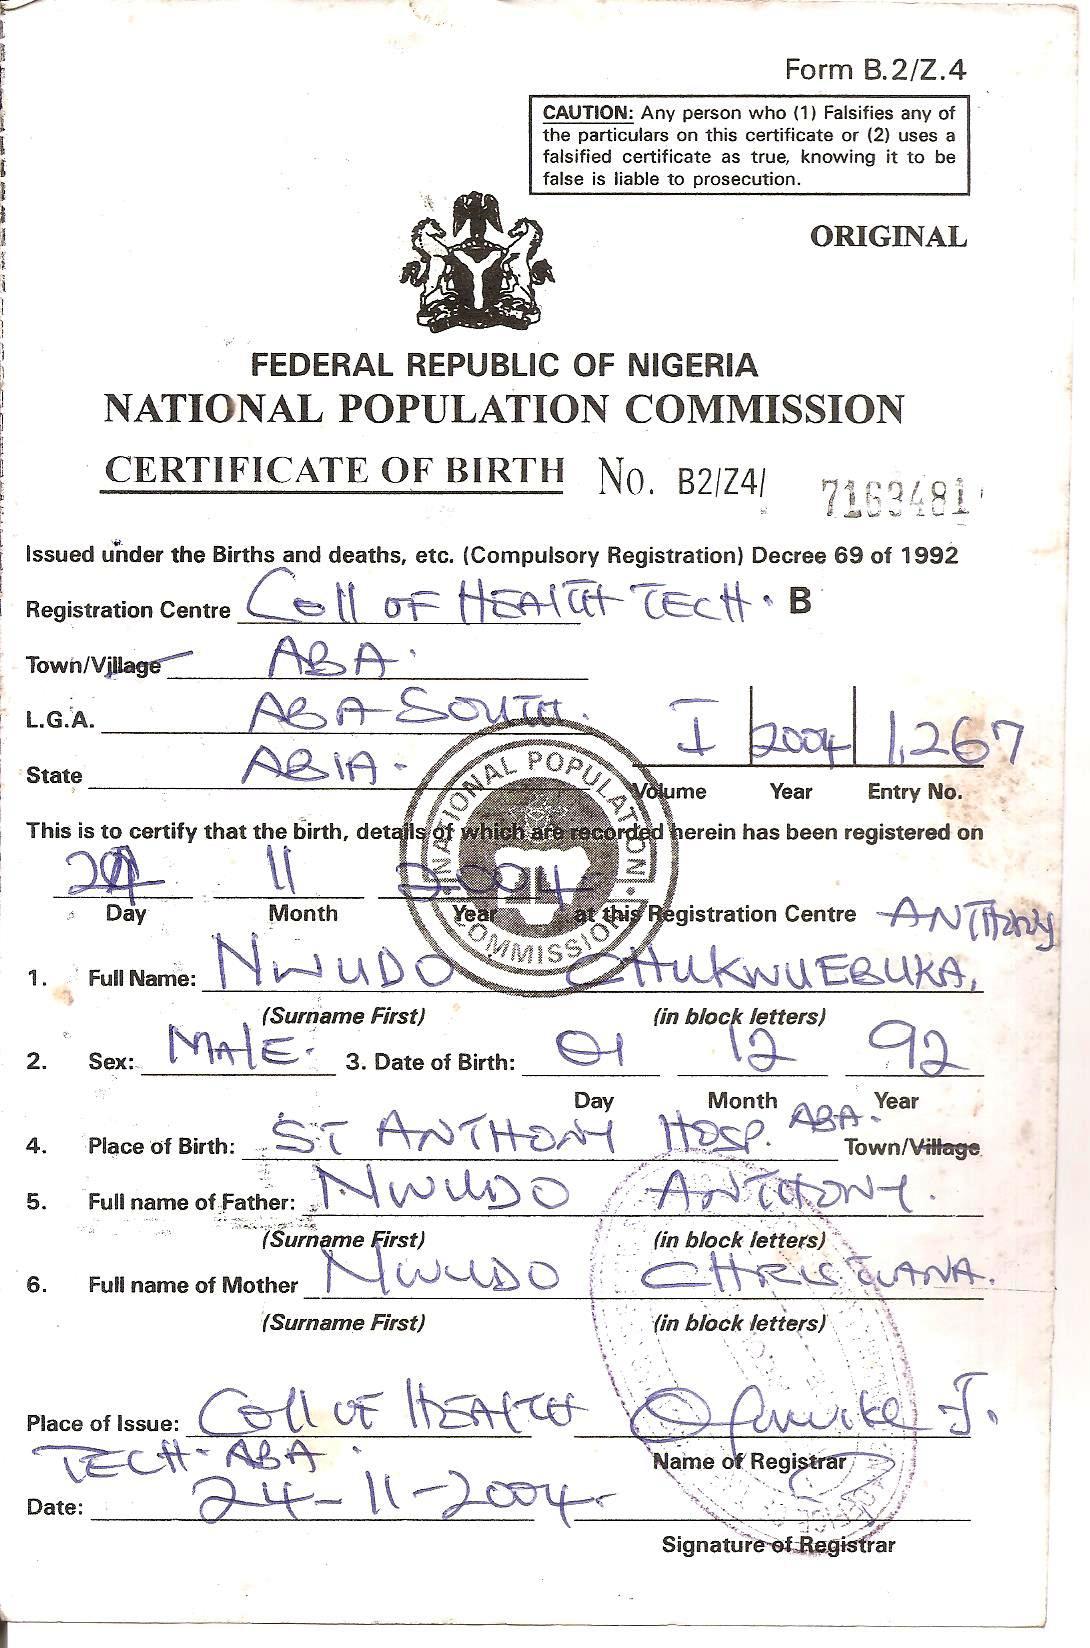 Form B.2/Z.4
CAUTION: Any person who (1) Falsifies any of
the particulars on this certificate or (2) uses a
falsified certificate as true, knowing it to be
false is liable to prosecution.
ORIGINAL
FEDERAL REPUBLIC OF NIGERIA
NATIONAL POPULATION COMMISSION
CERTIFICATE OF BIRTH No. B2/Z4/ 7163481
Issued under the Births and deaths, etc. (Compulsory Registration) Decree 69 of 1992
Registration Centre Coll OF HEALTH TECH. B
Town/Village ABA.
L.G.A. ABA SOUTH.
I 2004 1,267
State ABIA.
Volume Year Entry No.
NATIONAL POPULATION COMMISSION
This is to certify that the birth, details of which are recorded herein has been registered on
24 11 2004
Day Month Year at this Registration Centre
ANTHONY
1. Full Name: NWUDO CHUKWUEBUKA,
(Surname First) (in block letters)
2. Sex: MALE. 3. Date of Birth: 01 12 92
Day Month Year
4. Place of Birth: ST ANTHONY HOSP. ABA. Town/Village
5. Full name of Father: NWUDO ANTHONY.
(Surname First) (in block letters)
6. Full name of Mother NWUDO CHRISTIANA.
(Surname First) (in block letters)
Place of Issue: Coll OF HEALTH
TECH. ABA.
Name of Registrar
Date: 24-11-2004.
Signature of Registrar